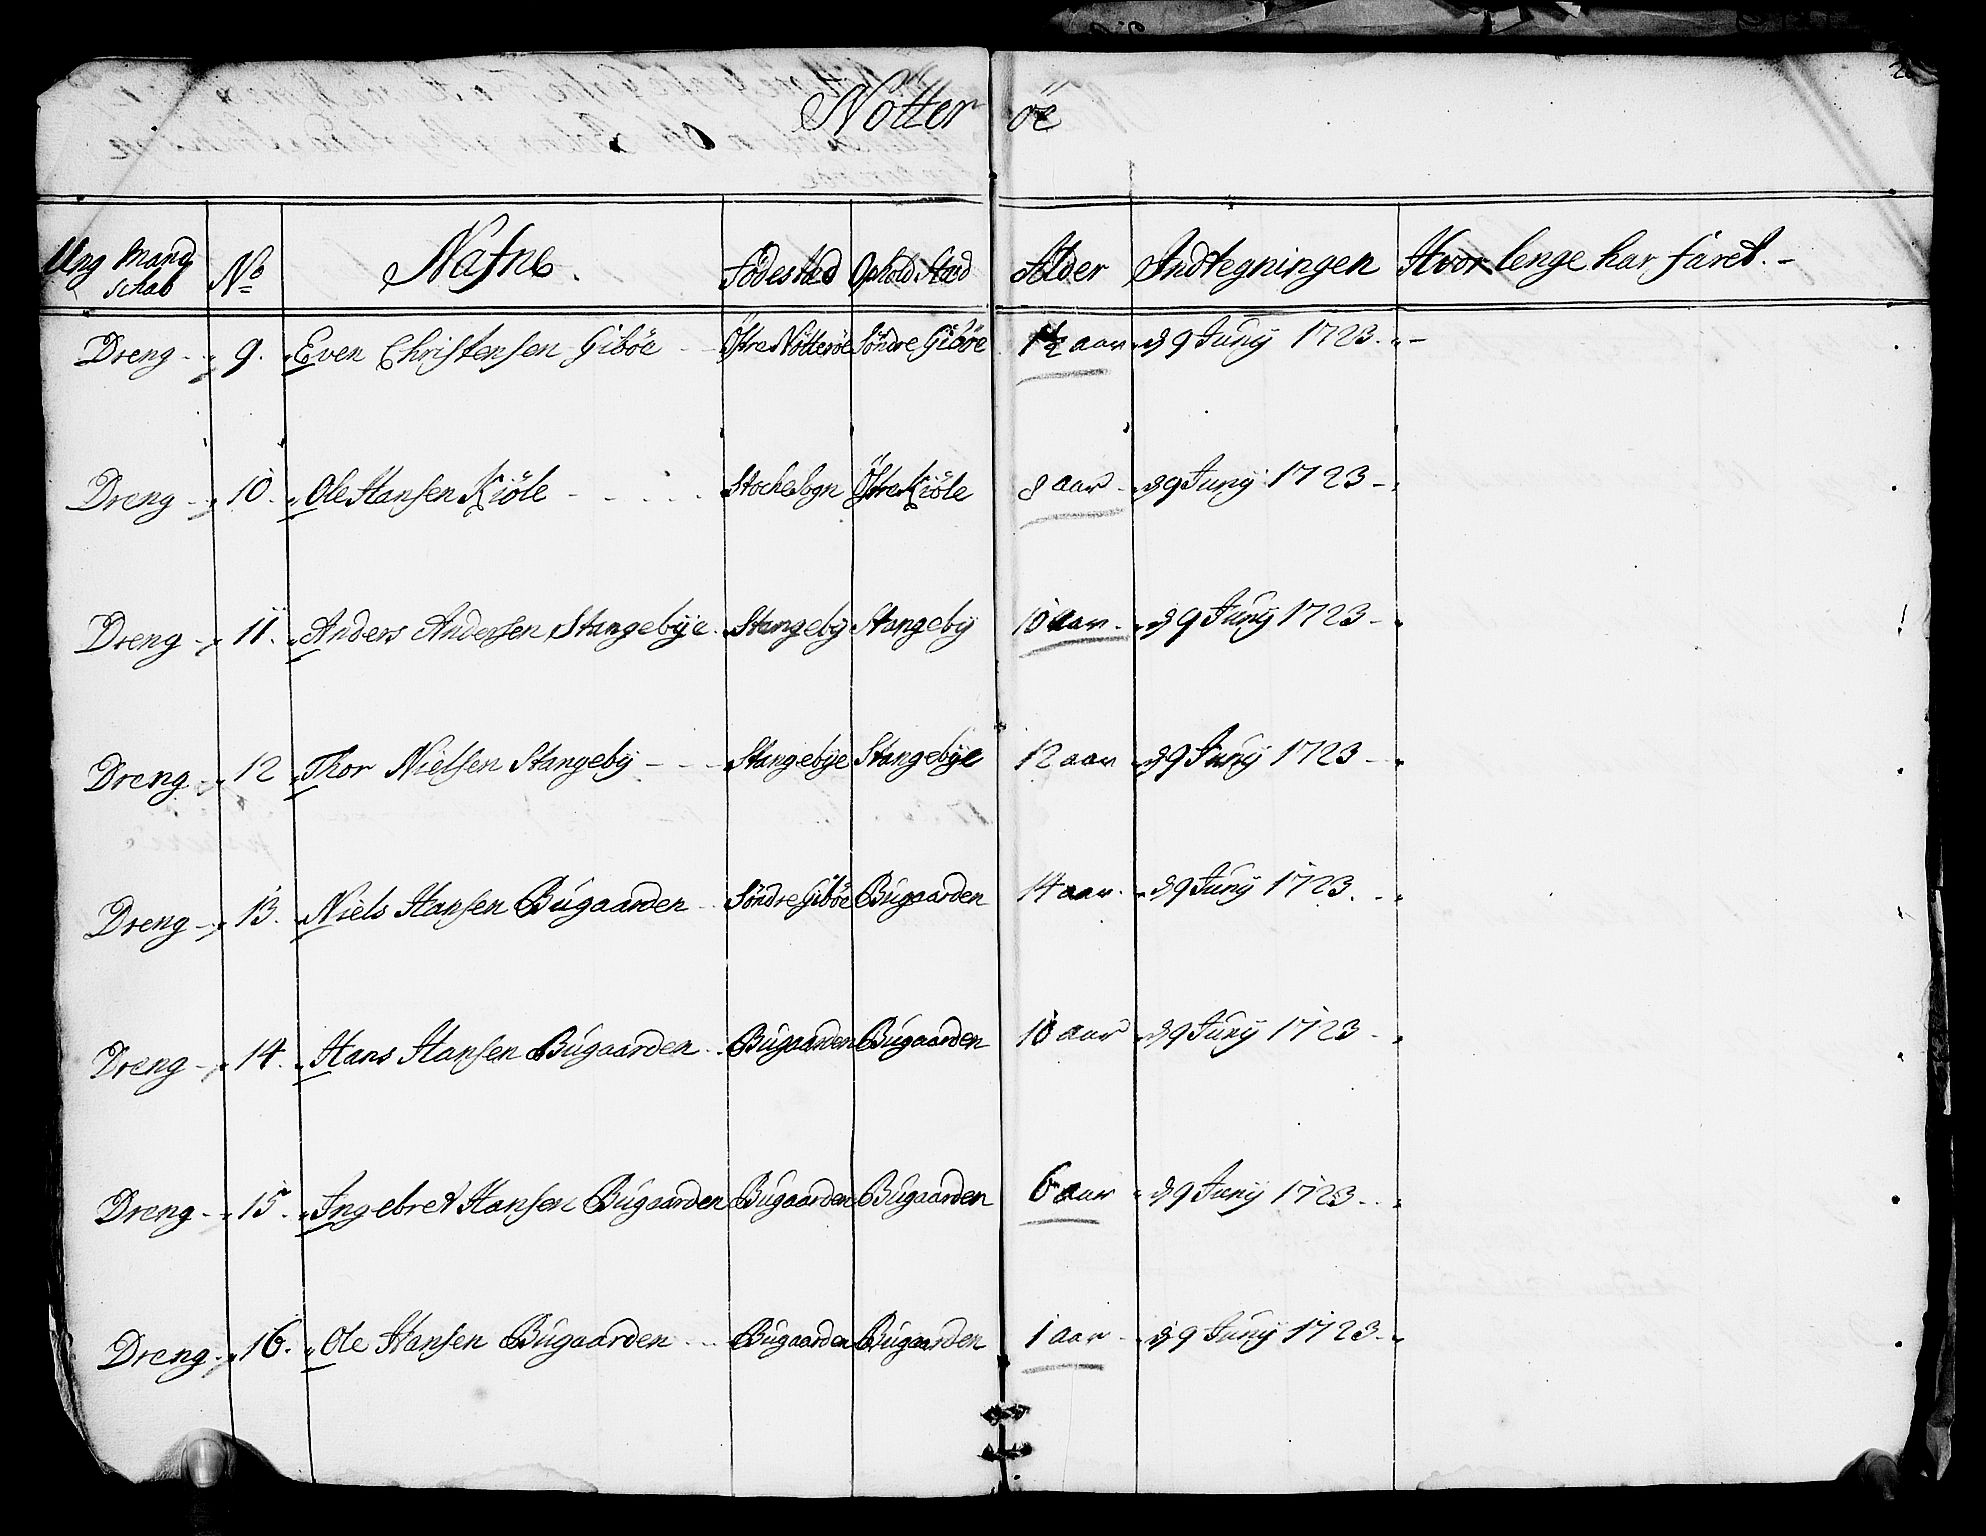 Nötter öe
Ung Mand schab No Nafne. Födestæd Ophold Stæd Alder Indtegningen Hvor lenge har faret. -
Dreng - 9. Even Christensen Giböe - Östre Nötteröe Söndre Giböe 1½ aar d 9 Juny 1723. -
Dreng - 10. Ole Hansen Kiöle - Stochesogn Östre Kiöle 8 aar - d 9 Juny 1723 -
Dreng - 11. Anders Andersen Stangebye. Stangeby Stangeby 10 aar - d 9 Juny 1723 -
Dreng - 12 Thor Nielsen Stangeby - - Stangebye Stangebye 12 aar d 9 Juny 1723 -
Dreng - 13. Niels Hansen Bugaarden Söndre Giböe Bugaarden 14 aar - d 9 Juny 1723. -
Dreng - 14. Hans Hansen Bugaarden - Bugaarden Bugaarden 10 aar d 9 Juny 1723 -
Dreng - 15. Ingebret Hansen Bugaarden Bugaarden Bugaarden 6 aar d 9 Juny 1723 -
Dreng - 16. Ole Hansen Bugaarden - Bugaarden Bugaarden 1 aar - d 9 Juny 1723 -